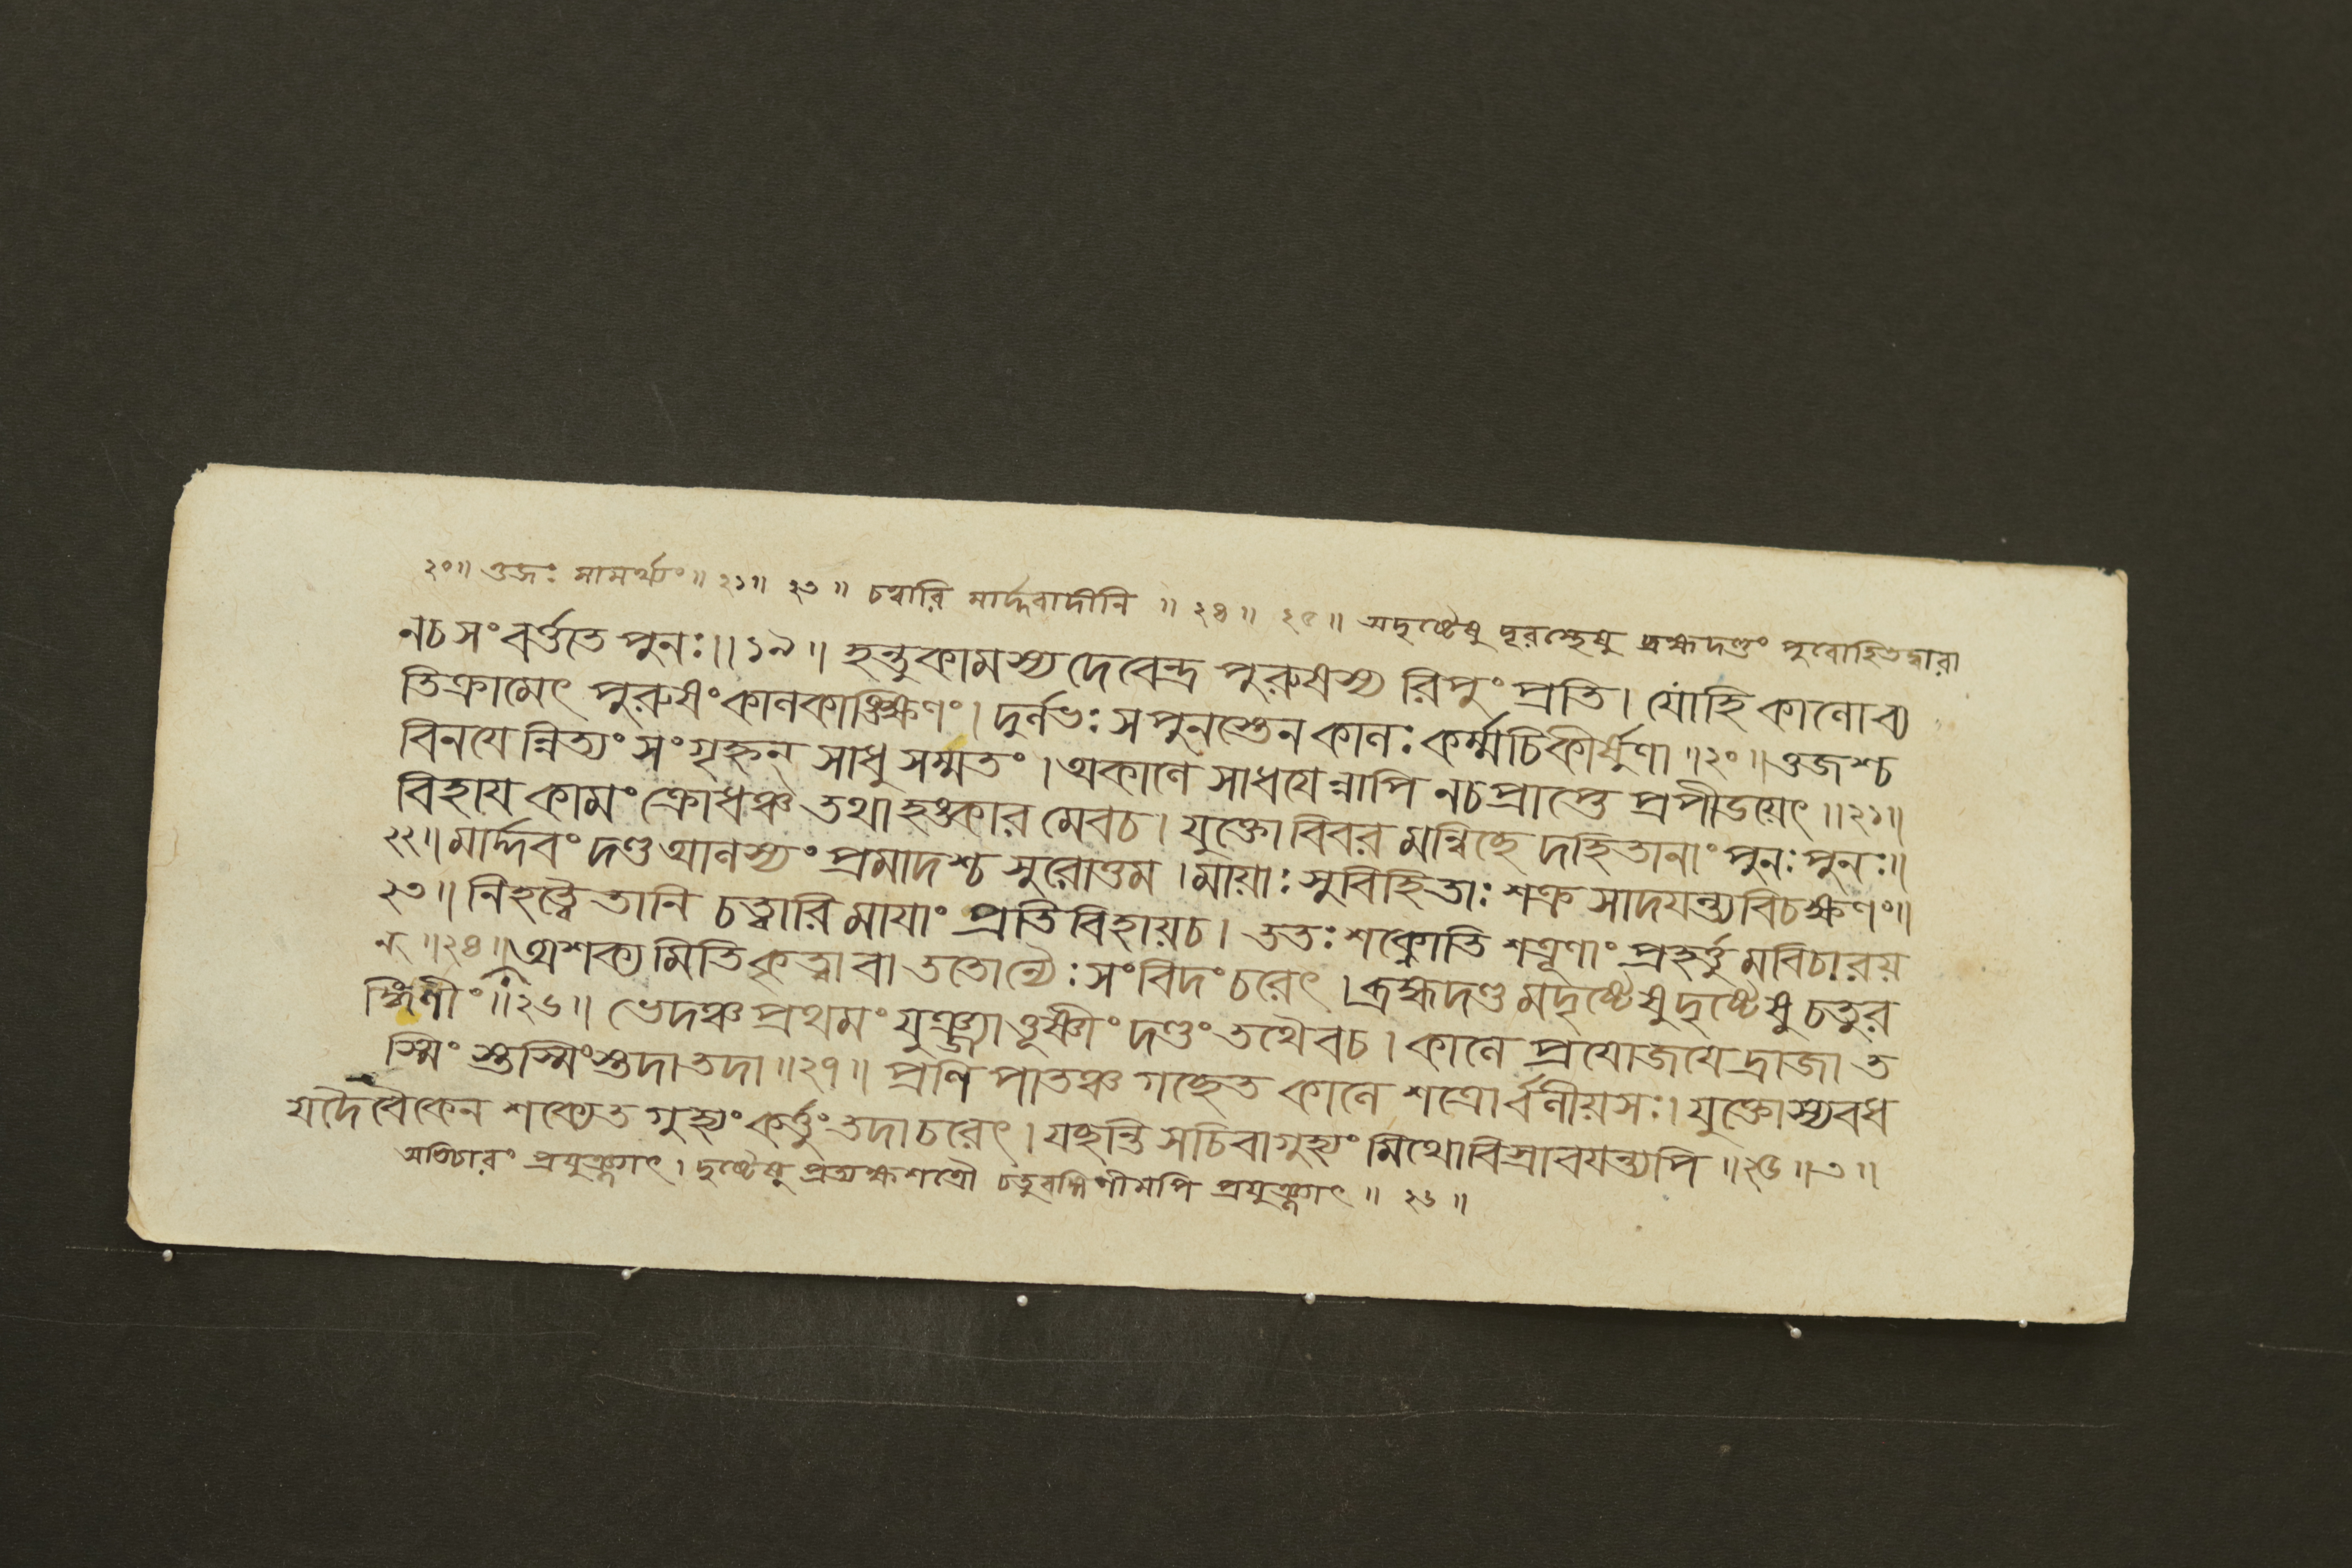 ২০॥ ওজঃ সামর্থ্যং॥ ২১॥ ২৩॥ চত্বারি মার্দ্দবাদীনি ॥ ২৪॥ ২৫॥ অদৃষ্টেষু দূরস্থেষু ব্রহ্মদণ্ডং পুরোহিতদ্বারা
নচসংবর্ত্ততে পুনঃ॥১৯॥ হন্তুকামস্য দেবেন্দ্র পুরুষস্য রিপুং প্রতি। যোহি কালোব্য
তিক্রামেৎ পুরুষং কালকাঙ্ক্ষিণং। দুর্লভঃ সপুনস্তেন কালঃ কর্ম্মচিকীর্ষুণা॥২০॥ ওজশ্চ
বিনযেন্নিত্যং সংগৃহ্নন্ সাধুসম্মতং। অকালে সাধযেন্নাপি নচপ্রাপ্তে প্রপীডয়েৎ॥২১॥
বিহায কামং ক্রোধঞ্চ তথাহঙ্কারমেবচ। যুক্তোবিবরমন্বিচ্ছেদহিতানাং পুনঃপুনঃ॥
২২॥ মার্দ্দবং দণ্ডআলস্যং প্রমাদশ্চ সুরোত্তম। মায়াঃ সুবিহিতাঃ শক্র সাদযন্ত্যবিচক্ষণং॥
২৩॥ নিহত্বৈতানি চত্বারি মাযাং প্রতিবিহায়চ। ততঃ শক্নোতি শত্রূণাং প্রহর্ত্তুমবিচারয়
ন্॥২৪॥ অশক্যমিতিকৃত্বাবা ততোন্যৈঃ সংবিদংচরেৎ। ব্রহ্মদণ্ডমদৃষ্টেষু দৃষ্টেষু চতুর
ঙ্গিণীং॥২৬॥ ভেদঞ্চ প্রথমং যুঞ্জ্যাত্তূষ্ণীং দণ্ডং তথৈবচ। কালে প্রযোজযেদ্রাজা ত
স্মিংস্তস্মিংস্তদাতদা॥২৭॥ প্রণিপাতঞ্চ গচ্ছেত কালে শত্রোর্বলীয়সঃ। যুক্তোস্যবধ
যদৈবৈকেন শক্যেত গুহ্যং কর্ত্তুং তদাচরেৎ। যচ্ছন্তি সচিবাগুহ্যং মিথোবিস্রাবযন্ত্যপি॥২৫॥৩॥
অভিচারং প্রযুঞ্জ্যাৎ। দৃষ্টেষু প্রত্যক্ষশত্রৌ চতুরঙ্গিণীমপি প্রযুঞ্জ্যাৎ॥ ২৬॥